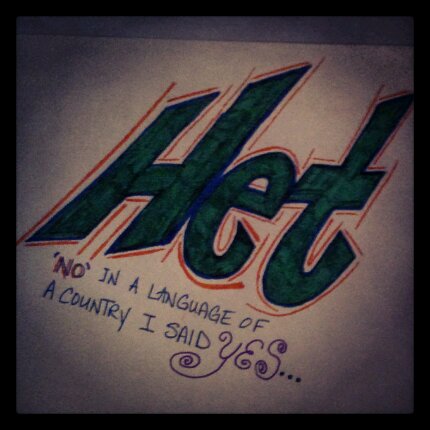 Нет
'NO' IN A LANGUAGE OF
A COUNTRY I SAID YES...